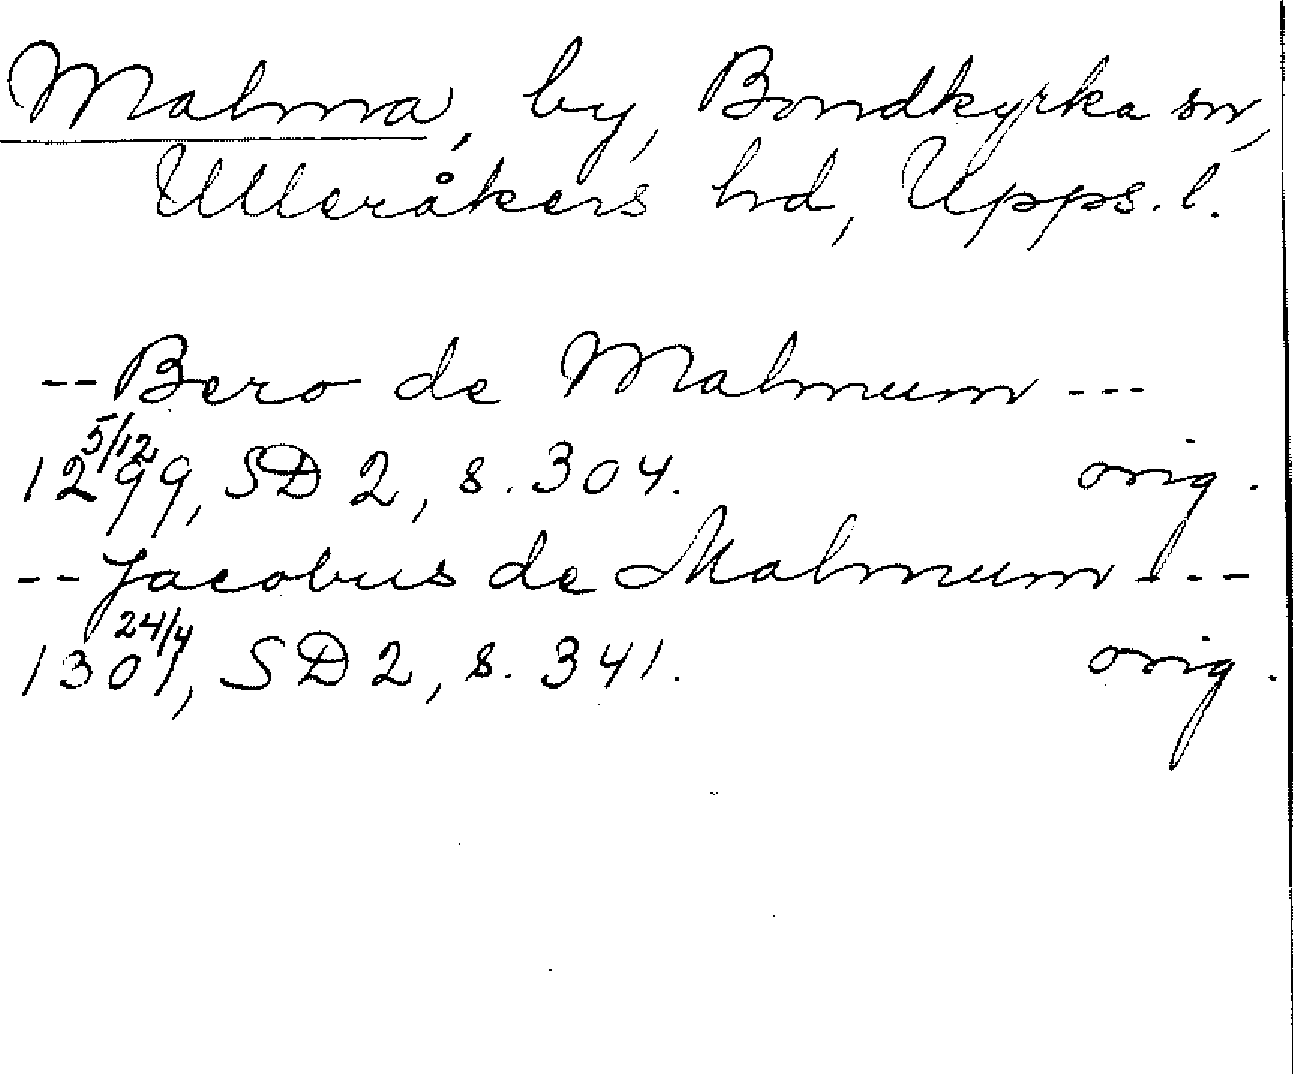 Malma, by, Bondkyrka sn,
Ulleråkers hd, Upps. l.
-- Bero de Malmum ---
5/12
1299, SD 2, s. 304. orig.
-- Jacobus de Malmum ---
24/4
1301, SD 2, s. 341. orig.